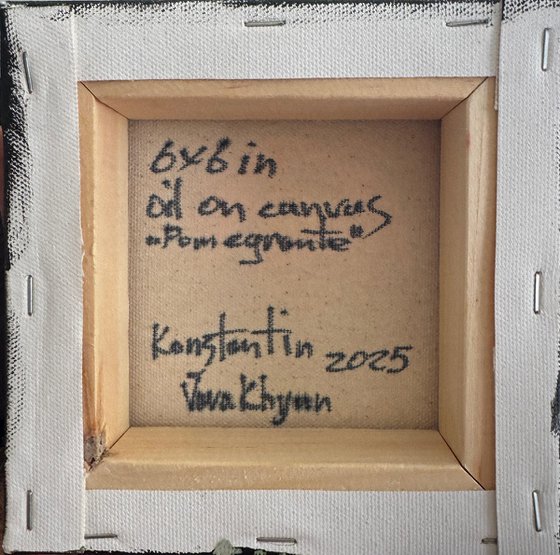 6x6 in
oil on canvas
"Pomegranate"
Konstantin 2025
JvvaKhyan